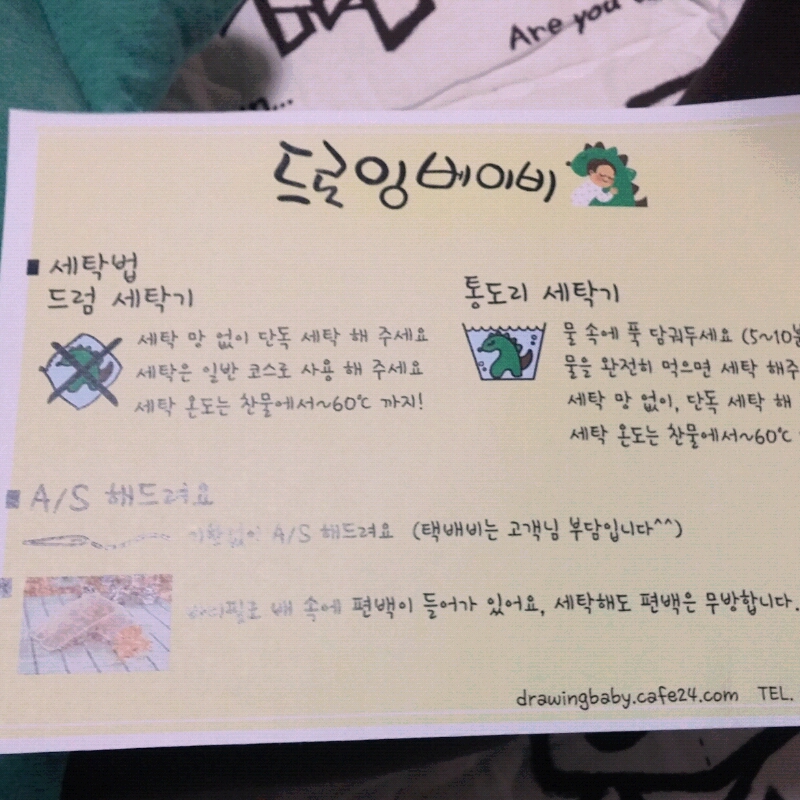 Are you
드로잉베이비
■ 세탁법
드럼 세탁기
세탁 망 없이 단독 세탁 해 주세요
세탁은 일반 코스로 사용 해 주세요
세탁 온도는 찬물에서~60℃ 까지!
통돌이 세탁기
물 속에 푹 담궈두세요 (5~10분
물을 완전히 먹으면 세탁 해주
세탁 망 없이, 단독 세탁 해
세탁 온도는 찬물에서~60℃
■ A/S 해드려요
기한없이 A/S 해드려요 (택배비는 고객님 부담입니다^^)
배 속에 편백이 들어가 있어요, 세탁해도 편백은 무방합니다.
drawingbaby.cafe24.com TEL.